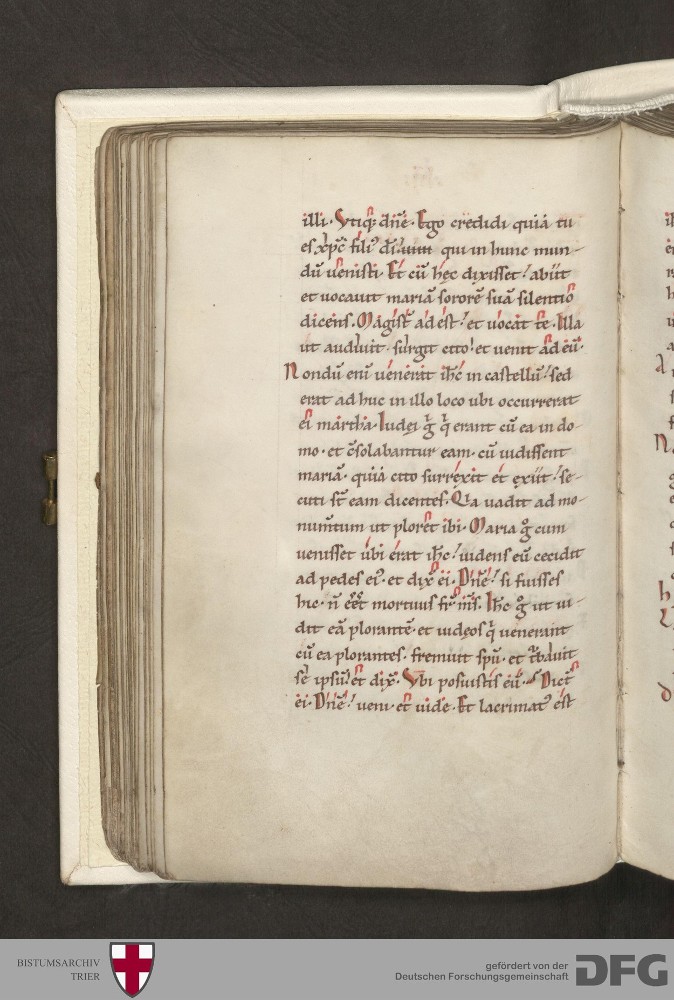 illi. Vtiq; dn̄e. Ego credidi quia tu
es xp̄c fili᾽ di᾽ uiui qui in hunc mun-
dū uenisti. Et cū hęc dixisset᾽ abiit
et uocauit mariā sororē suā silentio
dicens. Magist̄ adest᾽ et uocat te. Illa
ut audiuit. surgit cito᾽ et uenit ad eū.
Nondū eni uenerat ih̄c in castellū᾽ sed
erat ad huc in illo loco ubi occurrerat
ei martha. Iudei g̊ q̄ erant cū ea in do-
mo. et c̄solabantur eam. cū uidissent
mariā. quia cito surrexit et exiit᾽ se-
cuti st̄ eam dicentes. Q̇a uadit ad mo-
numtum ut ploret ibi. Maria g̊ cum
uenisset ubi erat ih̄c᾽ uidens eū cecidit
ad pedes ei᾽. et dix̄ ei. Dn̄e᾽ si fuisses
hic. n̄ eēt mortuus fr̄ m̄s. Ih̄c g̊ ut ui-
dit eā plorantē. et iudęos q̄ uenerant
cū ea plorantes. fremuit spū. et t̄bauit
sē ipsū᾽ et dix̄. Vbi posuistis eū. Dict̄
ei. Dn̄e᾽ ueni. et uide. Et lacrimat᾽ est
BISTUMSARCHIV
TRIER
gefördert von der
Deutschen Forschungsgemeinschaft
DFG